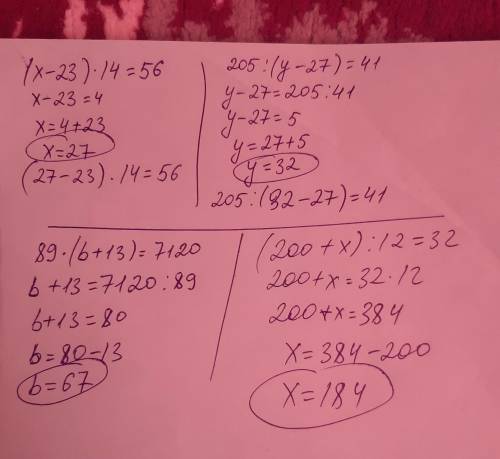 (x-23)·14=56
x-23=4
x=4+23
x=27
(27-23)·14=56
205:(y-27)=41
y-27=205:41
y-27=5
y=27+5
y=32
205:(32-27)=41
89·(b+13)=7120
b+13=7120:89
b+13=80
b=80-13
b=67
(200+x):12=32
200+x=32·12
200+x=384
x=384-200
x=184